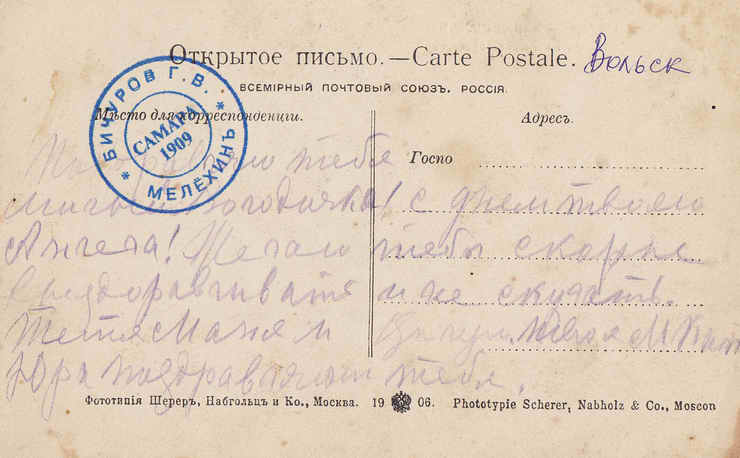 Открытое письмо. — Carte Postale. Вольск
ВСЕМІРНЫЙ ПОЧТОВЫЙ СОЮЗЪ. РОССІЯ.
БИЧУРОВ Г. В.
САМАРА
1909
* МЕЛЁХИНЪ *
Мѣсто для корреспонденціи.
Адресъ.
Госпо
Поздравляю тебя
милый ! с днем твоего
Ангела! Желаю тебе скорее
выздоравливать и не скучать.
Тетя Маня и
Юра поздравляют тебя.
Фототипія Шереръ, Набгольцъ и Ко., Москва. 19 06. Phototypie Scherer, Nabholz & Co., Moscou